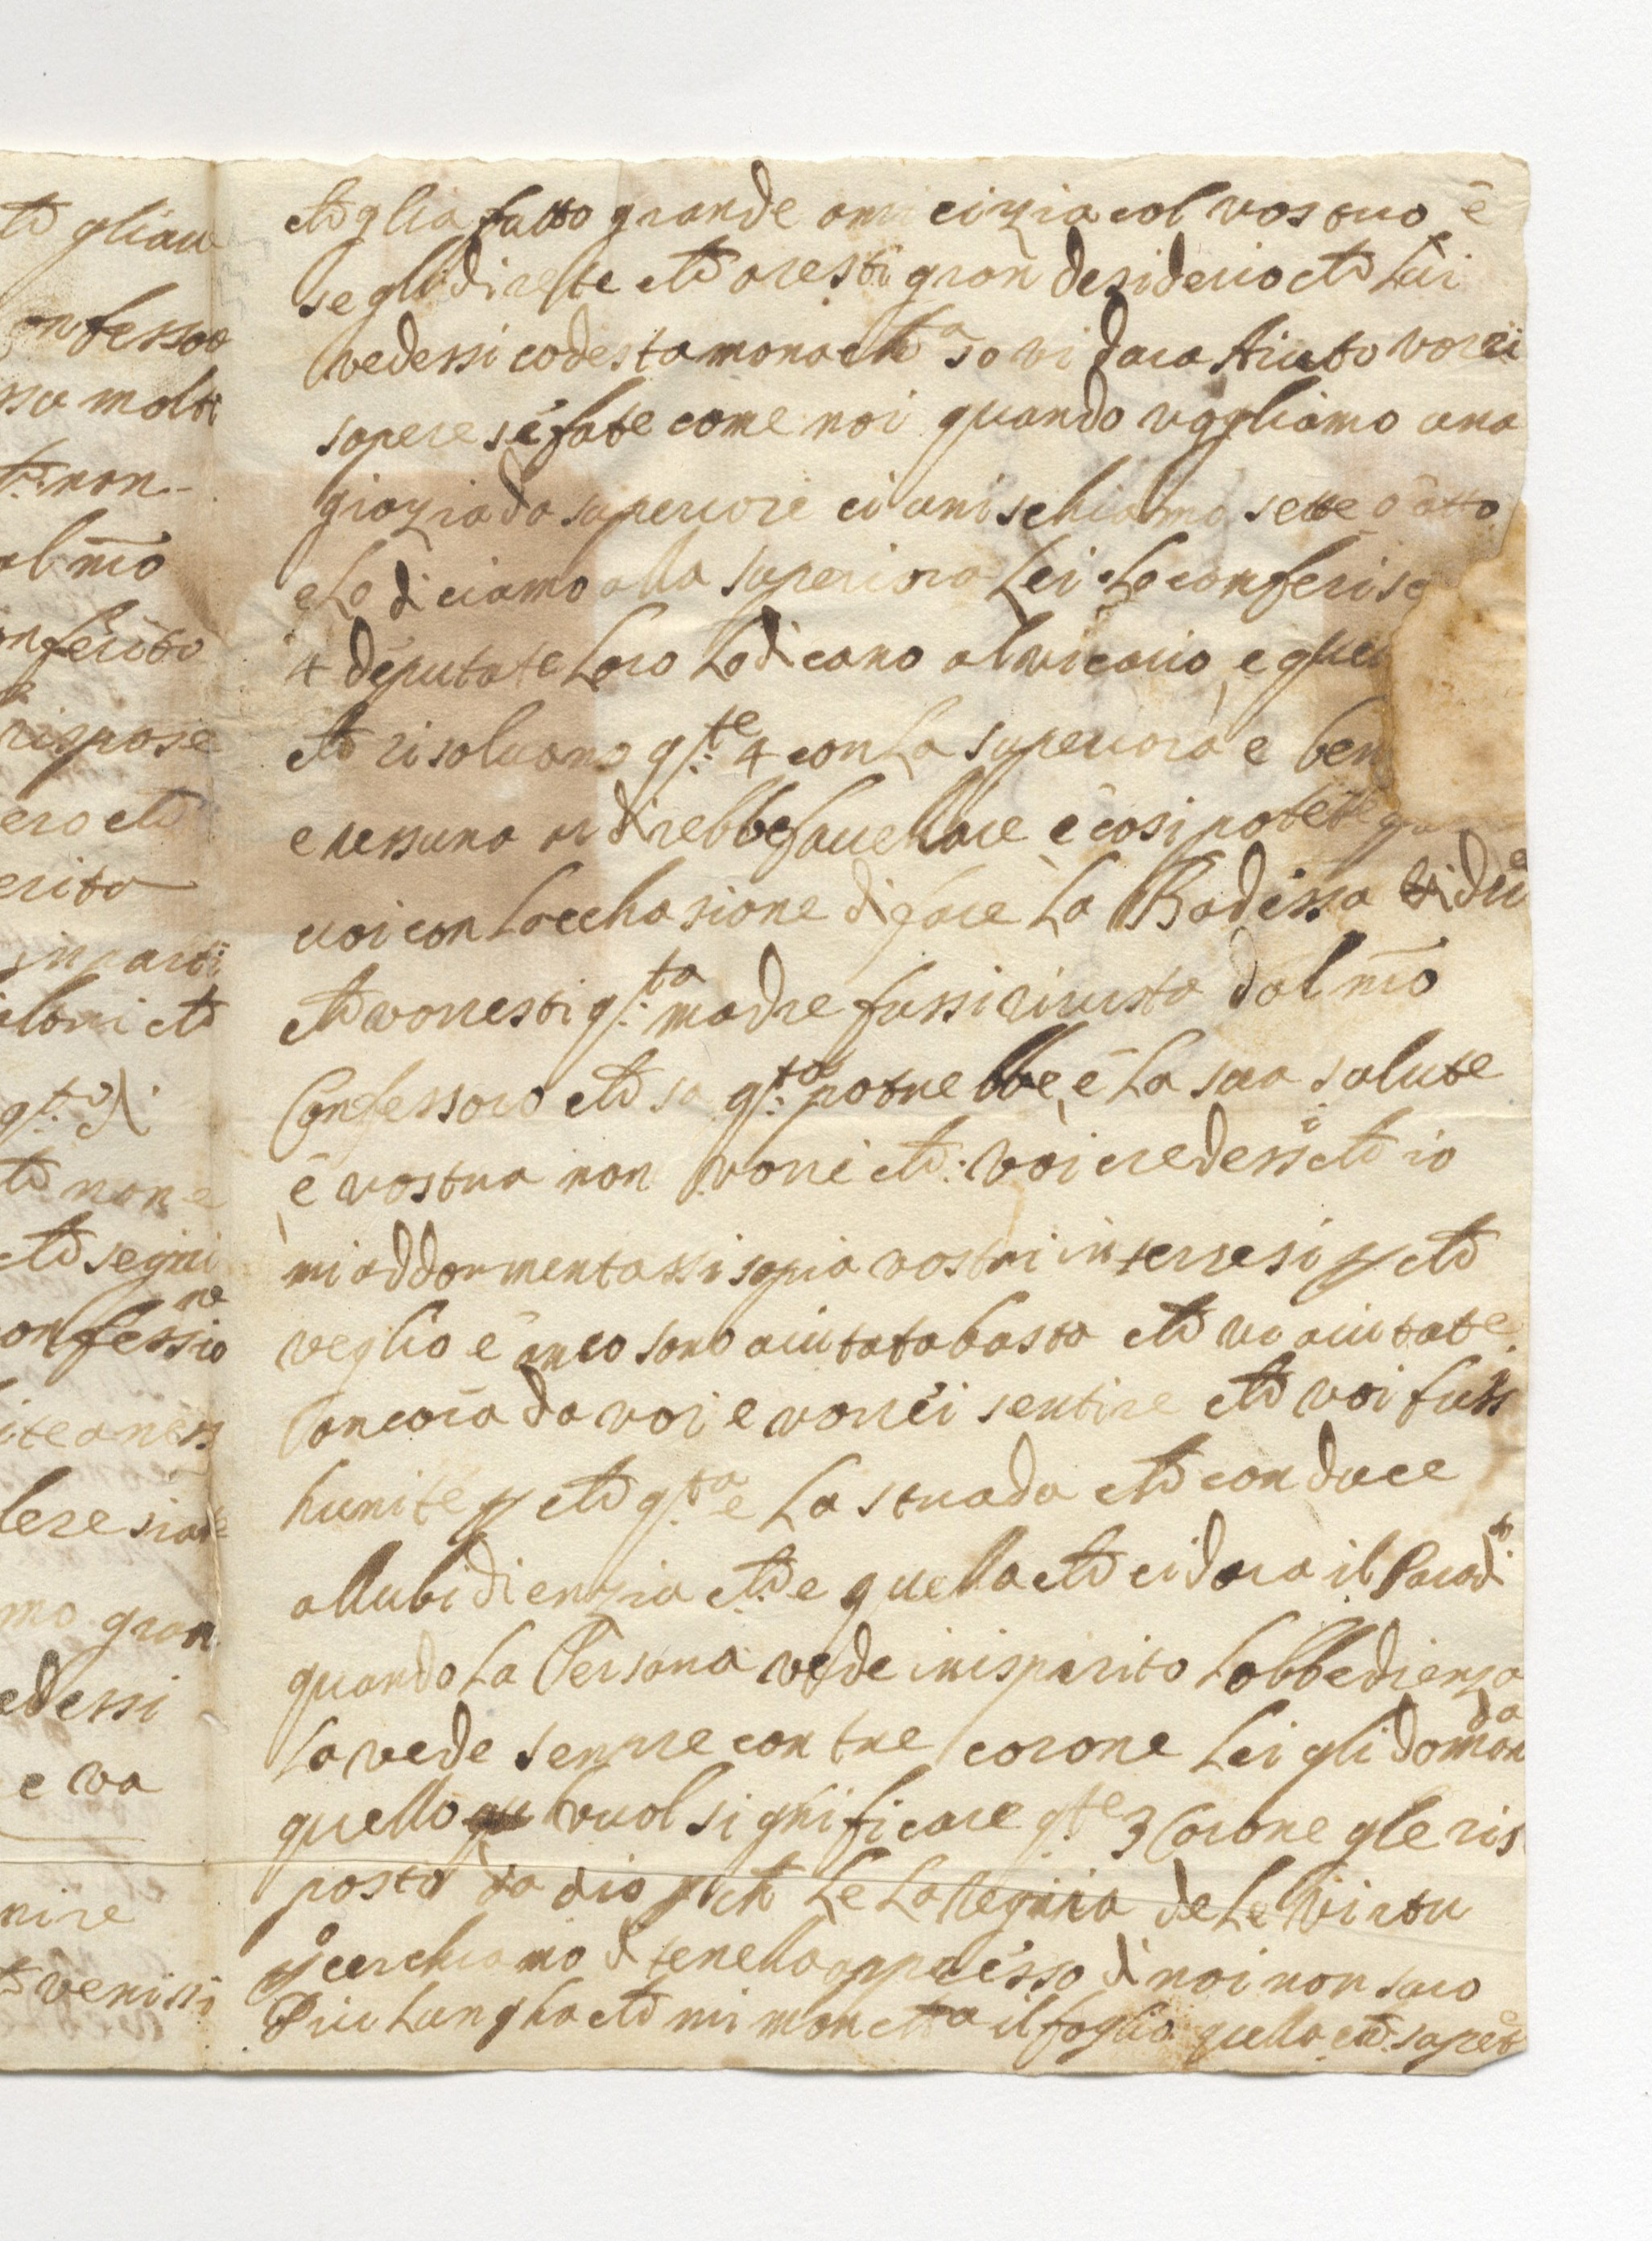 chē gliau
onfessoo
ssa molti
non-
al mīo
nferito
rispose
ero chē
erito
in parti
chē
q.to d.
chē non e
chē segni
onfessio ne
lere siate
mo gran
edessi
e va
nire
venissi
chē glia fatto grande amicizia col vostro ē
se gli direste chē aresti gran desiderio chē Lui
vedessi codesta monacha so vi dara Aiuto vorei
sapere sē fate come noi quando vogliamo una
grazia da superiore ci unischiamo sette ō otto
e Lo diciamo alla superiora Lei Lo conferisc
4 deputate Loro Lo dicano al vicario e quel
chē risoluano q.te 4 con La superiora e ben
e nessuna ardirebbe fauellare ē cosi potete
uoi con Locchasione di fare La Badessa di due
chē vorresti q.ta madre fussi riuista dal mīo
Confessoro chē so q.to potrebbe, ē La sua salute
ē vostra non vorrei chē: voi credessi chē io
mi addormentassi sopra vostri interresi p chē
veglio ē anco sono aiutata basta chē vi aiutate
ancora da voi e vorrei sentire chē voi fuss
hunite p chē q.ta e La strada chē conduce
allubidienzia chē e quella chē ci dara il Paradi so
quando La Persona vede in ispirito Lobbedienza
La vede senpre con tre corone Lei gli doman da
quello vuol significare q.te 3 Corone gle ris
posto da dio p ch Le La Regina de Le Virtu
p o cerchiamo di tenella appresso di noi non saro
Piu Lungha chē mi mancha il foglio quella chē sapete